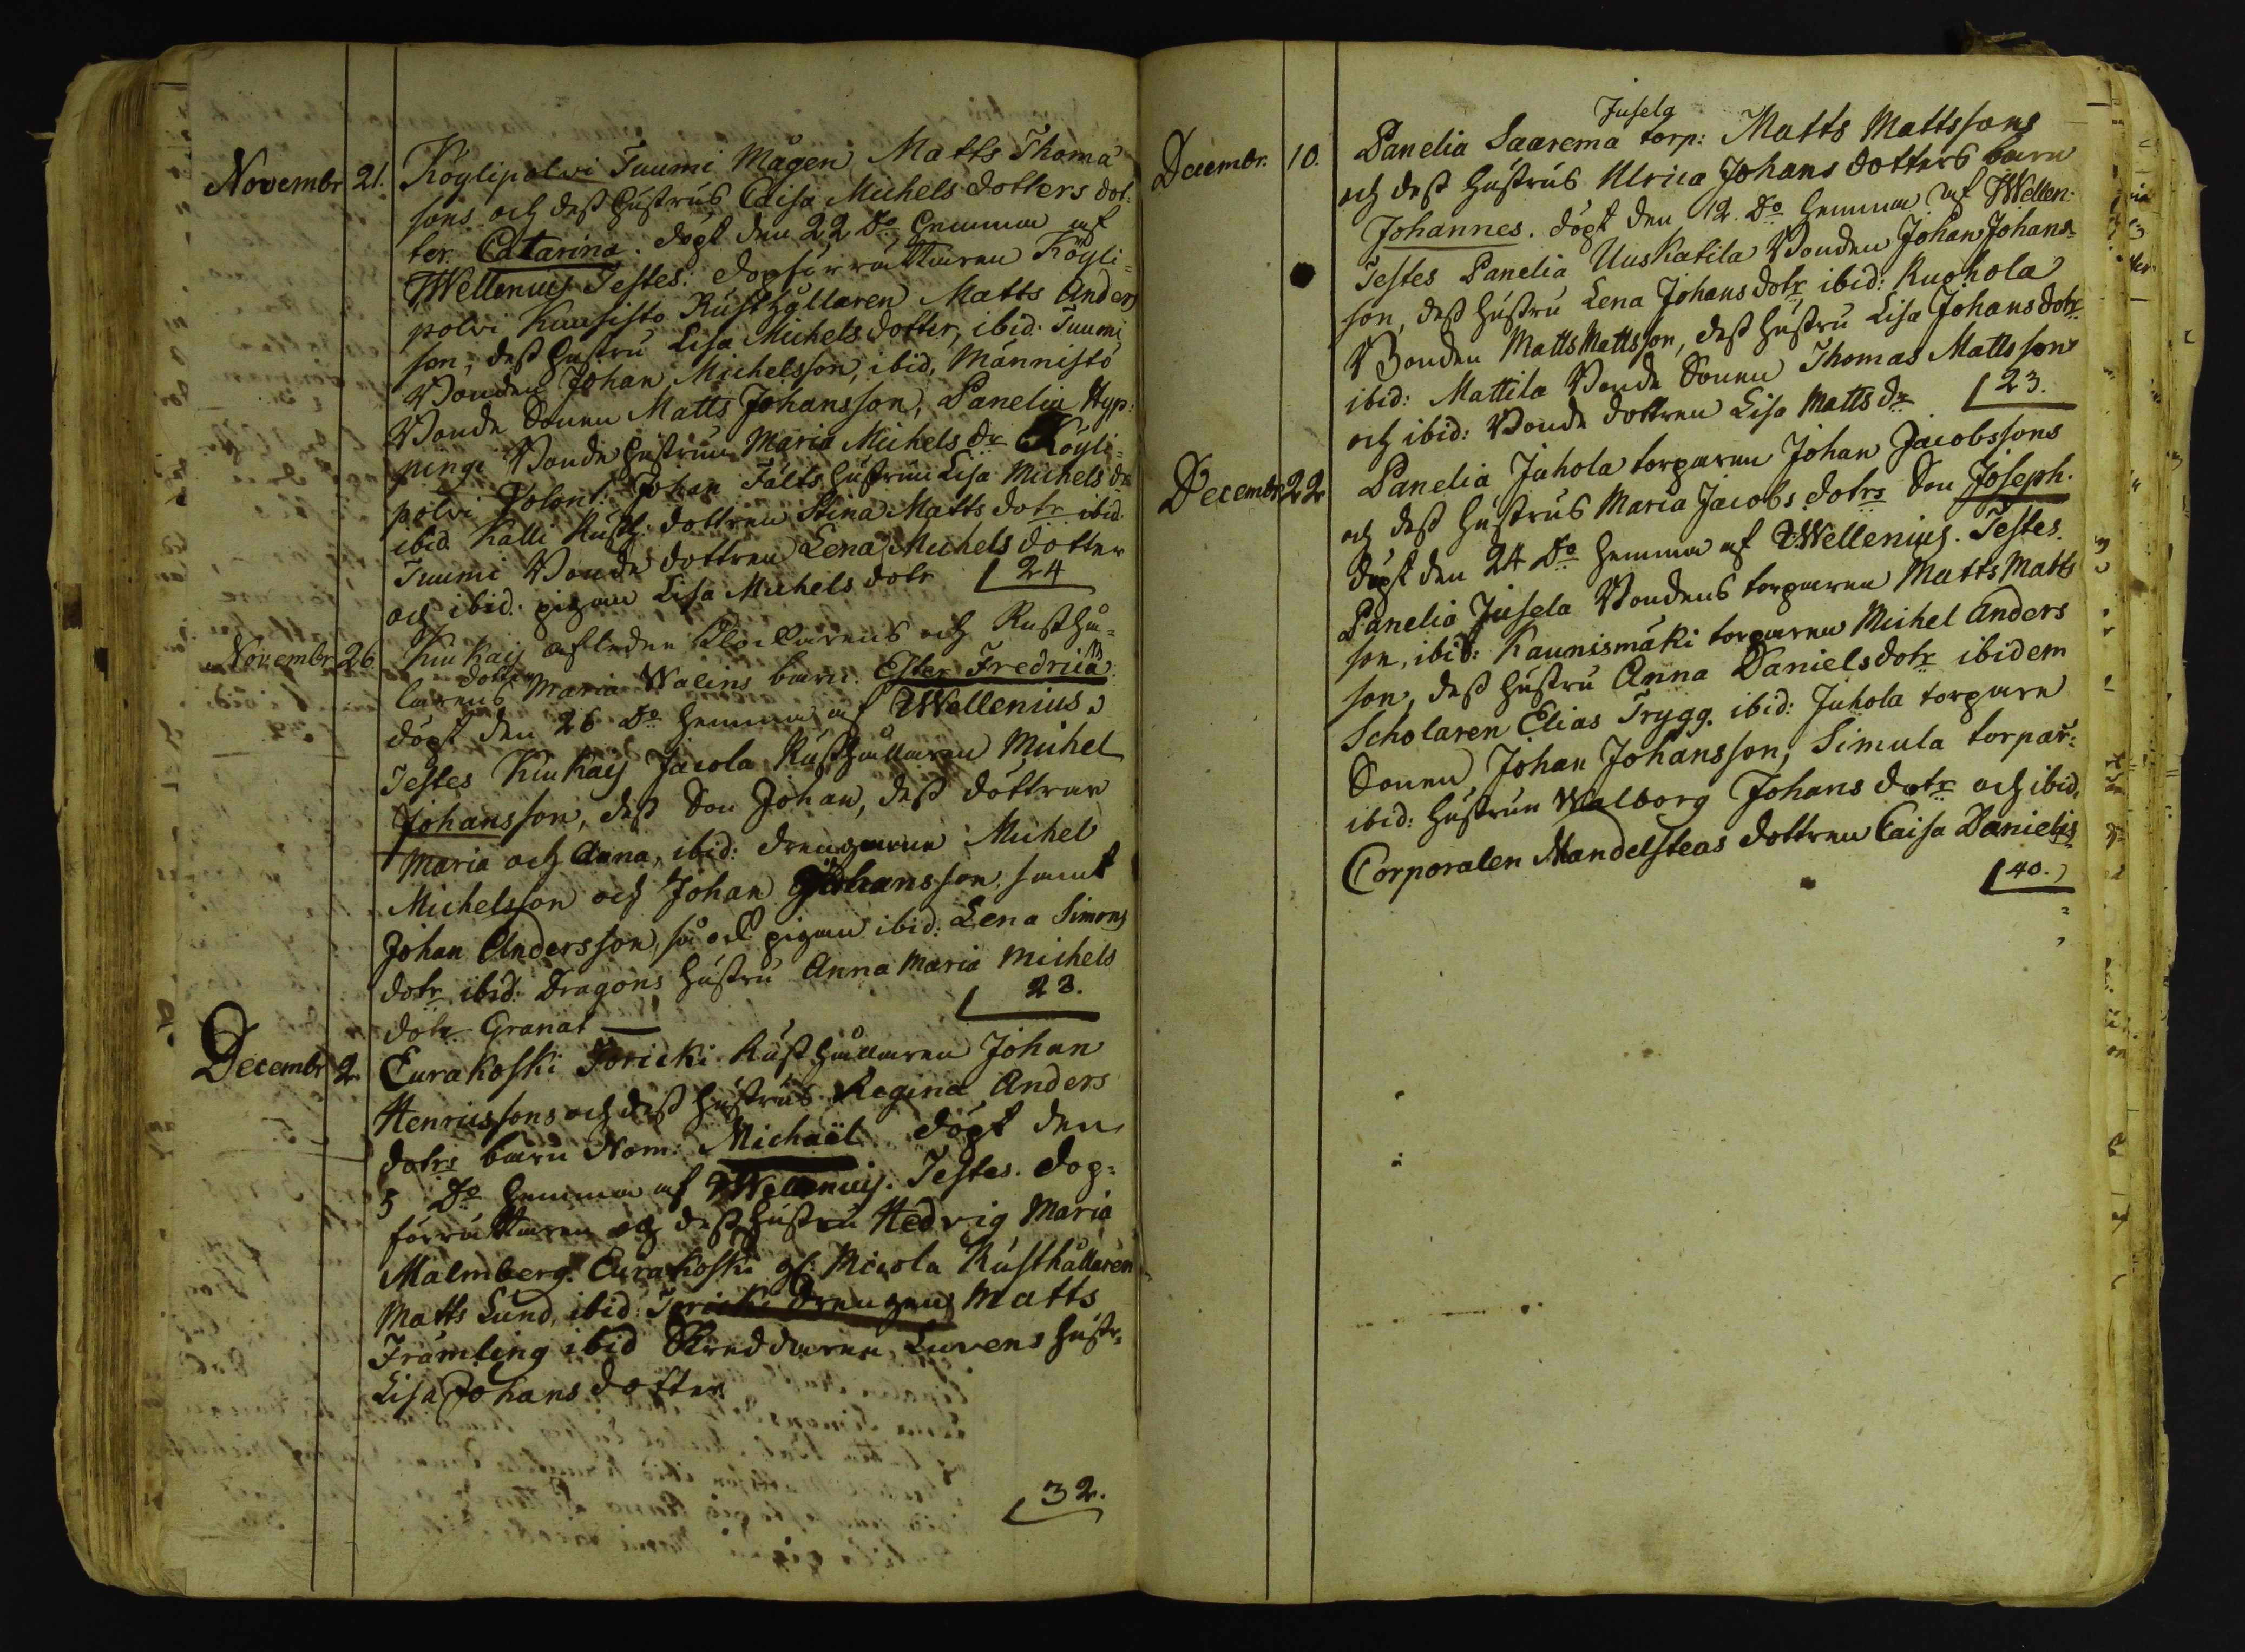 Novembr 21. Köylipolvi Tuumi Mågen Matts Thomæ
sons och dess hustrus Caisa Michels dotters dot:
ter. Catarina. döpt den 22 do hemma af
TWellenius Testes: dopförrättaren Köyli=
polvi Kuusisto Rusthållaren Matts Anders
son, dess hustru Lisa Michels dotter, ibid. Tuumi
Bonden Johan Michelsson, ibid, Männistö
Bonde Sonen Matts Johansson, Panelia Hyp:
pingi Bonde hustrun Maria Michels dr Köyli=
polvi Volont: Johan Fälts hustrun Lisa Michels dr
ibid Kalli Rusth: dottren Stina Matts dotr ibid.
Tuumi Bonde dottren Lena Michels dotter
och ibid. pigan Lisa Michels dotr 24
Novembr 26 Kiukais afledne Klockarens och Rusthål=
larens dotters Maria Walens barn. Ester Fredrica
döpt den 26 do hemma af TWellenius.
Testes Kiukais Jacola Rusthållaren Michel
Johansson, dess Son Johan, dess döttrar
Maria och Anna, ibid: drengarne Michel
Michelsson och Johan Johansson, samt
Johan Andersson, så ock pigan ibid: Lena Simons
dotr ibid: Dragons hustru Anna Maria Michels
dotr Granat 23.
Decembr 2. Eurakoski Joricki Rusthållaren Johan
Henricssons och dess hustrus Regina Anders
dotrs barn Nom: Michaël döpt den
5 do hemma af TWellenius. Testes. Dop=
förrättaren och dess hustru Hedvig Maria
Malmberg. Eurakoski gl: Micola Rusthållaren
Matts Lund, ibid: Joricki Drengens Matts
Främling ibid Skreddaren Luvens hustr:
Lisa Johans dotter
32.
Decembr. 10. Panelia Saarema Jusela torp: Matts Mattssons
och dess hustrus Ulrica Johans dotters barn
Johannes. döpt den 12. do hemma af TWellen:
Testes Panelia Uuskatila Bonden Johan Johans
son, dess hustru Lena Johans dotr ibid: Ruohola
Bonden Matts Mattsson, dess hustru Lisa Johans dotr
ibid: Mattila Bonde Sonen Thomas Mattsson
och ibid: Bonde dottren Lisa Matts dr. 23.
Decembr 22 Panelia Juhola torparen Johan Jacobssons
och dess hustrus Maria Jacobs dotrs Son Joseph.
döpt den 24 do hemma af TWellenius. Testes.
Panelia Jusela Bondens torparen Matts Matts
son, ibid: Kaunismäki torparen Michel Anders
son, dess hustru Anna Daniels dotr ibidem
Scholaren Elias Trygg. ibid: Juhola torpare
Sonen Johan Johansson, Simula torpar:
ibid: hustrun Walborg Johans dotr och ibid:
Corporalen Mandelsteos dottren Caisa Danielis
40.